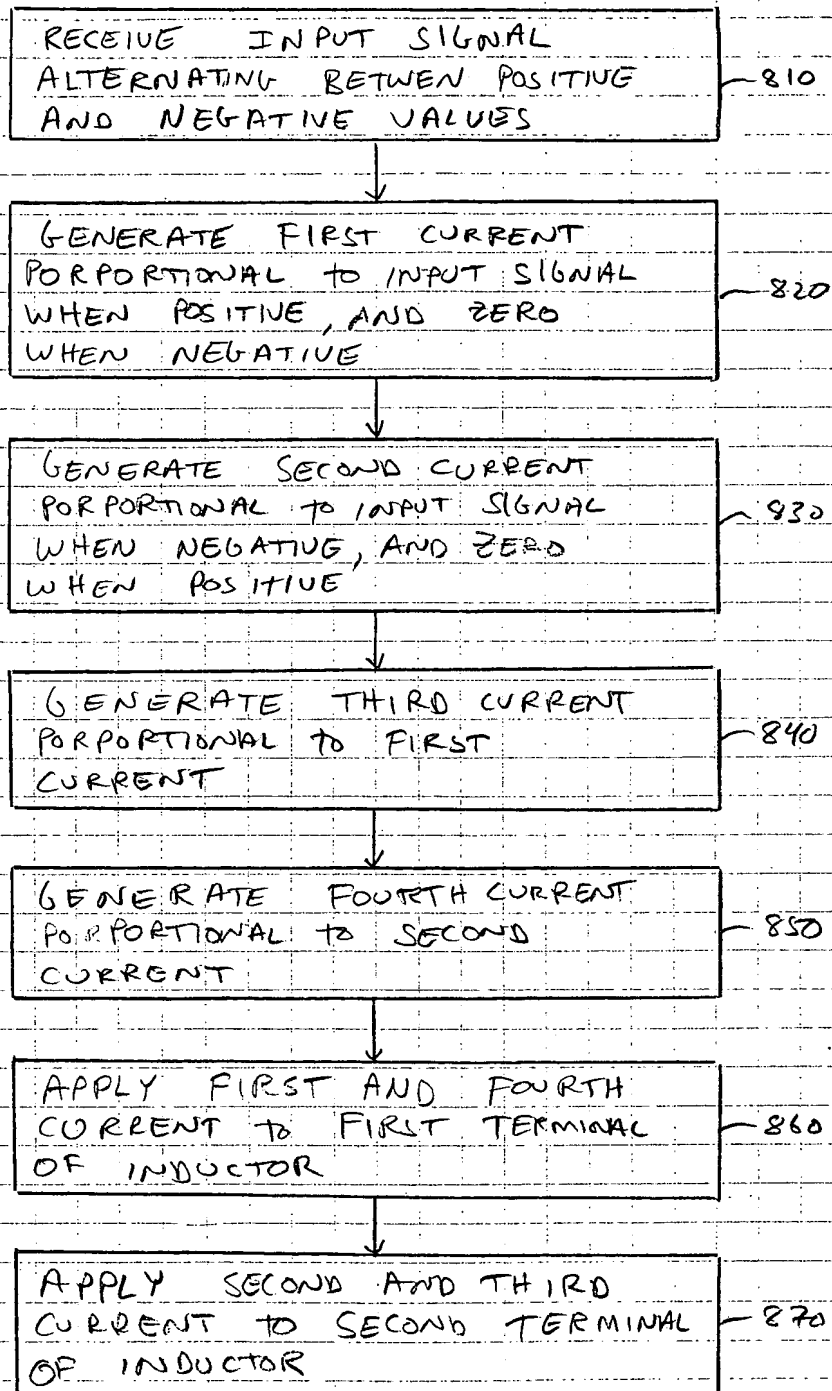 RECEIVE INPUT SIGNAL
ALTERNATING BETWEN POSITIVE
AND NEGATIVE VALUES
810
GENERATE FIRST CURRENT
PORPORTIONAL to INPUT SIGNAL
WHEN POSITIVE, AND ZERO
WHEN NEGATIVE
820
GENERATE SECOND CURRENT
PORPORTIONAL to INPUT SIGNAL
WHEN NEGATIVE, AND ZERO
WHEN POSITIVE
830
GENERATE THIRD CURRENT
PORPORTIONAL to FIRST
CURRENT
840
GENERATE FOURTH CURRENT
PORPORTIONAL to SECOND
CURRENT
850
APPLY FIRST AND FOURTH
CURRENT to FIRST TERMINAL
OF INDUCTOR
860
APPLY SECOND AND THIRD
CURRENT TO SECOND TERMINAL
OF INDUCTOR
870